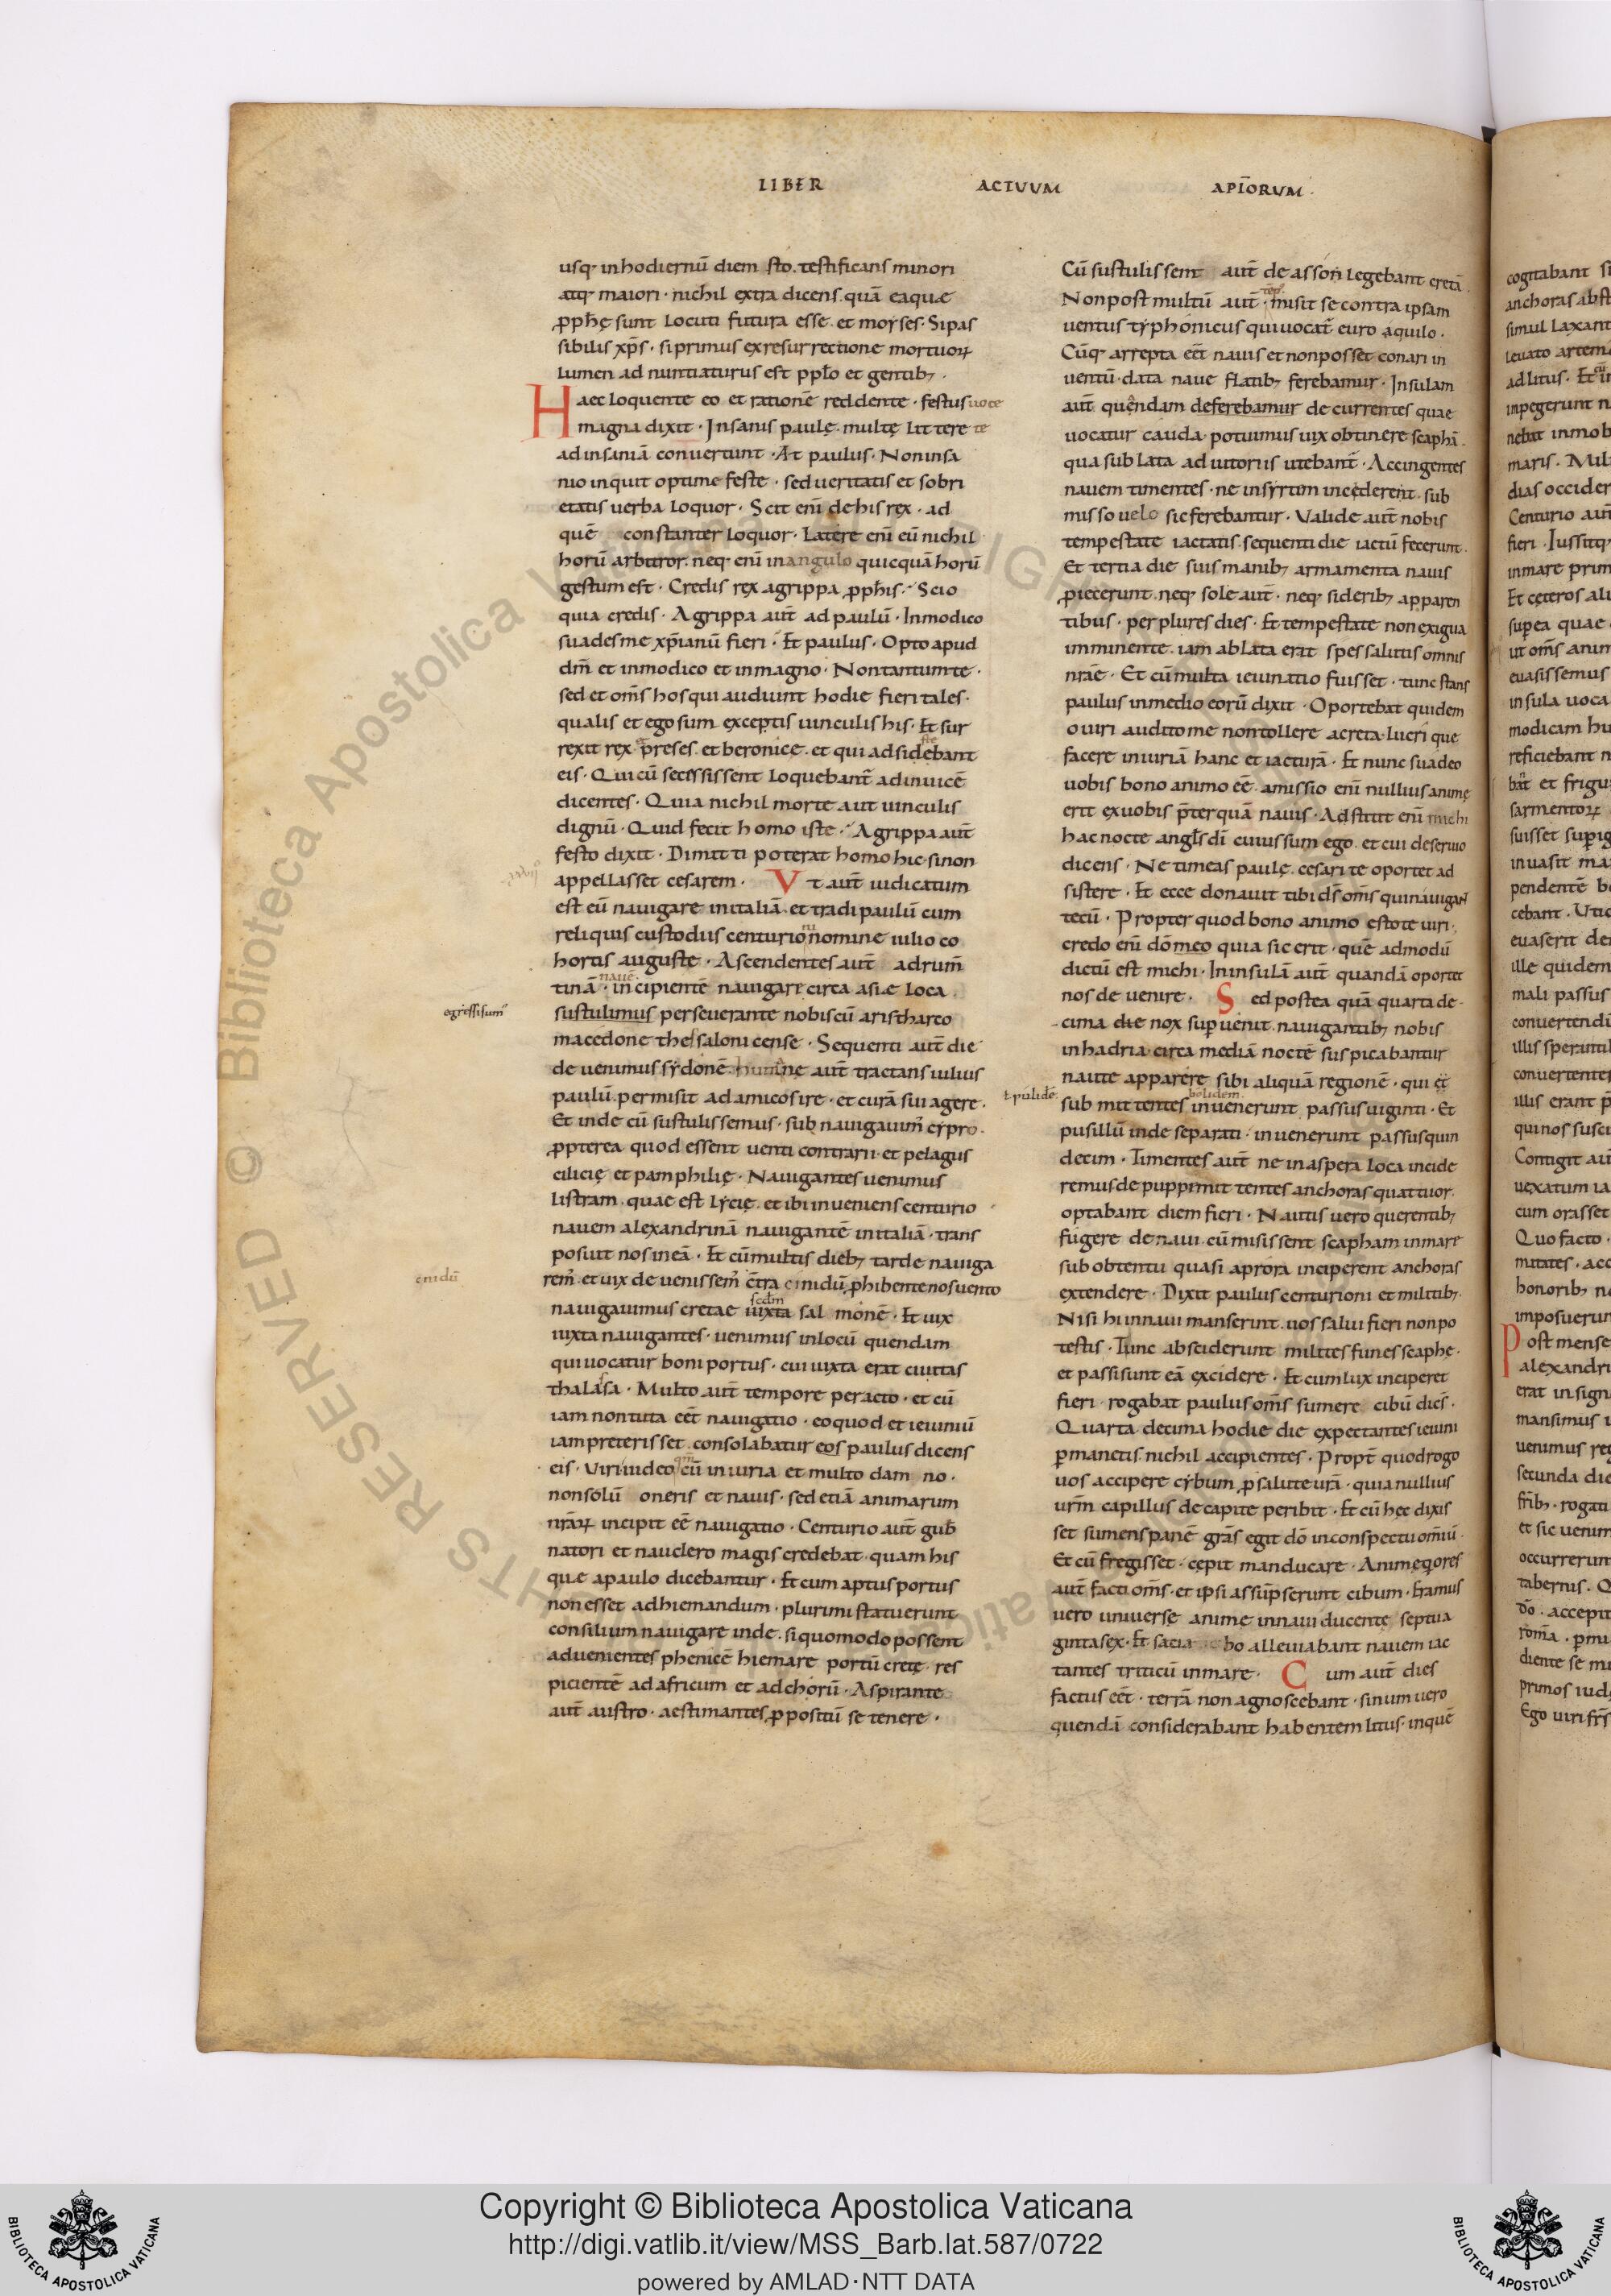 LIBER ACTUUM APL̄ORUM
usq· inhodiernū diem sto. testificans minori
atq· maiori· nichil extra dicens quā eaquæ
ꝓpħę sunt locuti futura esse. et moyses· Sipas
sibilis xp̄s· siprimus exresurrectione mortuoꝝ
lumen ad nuntiaturus est pplo et gentib;·
Haec loquente eo et rationē reddente· festus uoce
magna dixit· Insanis paulę. multę litterę te
adinsaniā conuertunt· At paulus· Noninsa
nio inquit optime feste· sed ueritatis et sobri
etatis uerba loquor· Scit enī dehis rex· ad
quē constanter loquor· Latere enī eū nichil
horū arbitror. neq· enī inangulo quicquā horū
gestum est· Credis rex agrippa ꝓpħis· Scio
quia credis· Agrippa aūt ad paulū· Inmodico
suades me xp̄ianū fieri· Et paulus· Opto apud
dm̄ et inmodico et inmagno· Nontantumte·
sed et om̄s hos qui audiunt hodie fieri tales·
qualis et ego sum exceptis uinculis his· Et sur
rexit rex et p̄reses. et beronice. et qui adsidebant
eis· Qui cū secessissent loquebant̄ adinuicē
dicentes· Quia nichil morte aut uinculis
dignū· Quid fecit homo iste· Agrippa aūt
festo dixit· Dimitti poterat homo hic· sinon
appellasset cesarem· Vt aūt iudicatum
est eū nauigare initaliā et tradi paulū cum
reliquis custodiis centurioni nomine iulio co
hortis auguste· Ascendentes aūt adrum̄
tinā nauē· incipientē nauigare circa asiæ loca
egressisum̄
sustulimus perseuerante nobiscū aristharco
macedone thessalonicense· Sequenti aūt die
de uenimus sydonē. humane aūt tractans iulius
paulū. permisit ad amicos ire· et curā sui agere·
Et inde cū sustulissemus· sub nauigauim̄ cypro·
ꝓpterea quod essent uenti contrarii· et pelagus
cilicię et pamphilię· Nauigantes uenimus
listram. quae est lycię. et ibi inueniens centurio
nauem alexandrinā nauigantē initaliā· trans
posuit nos ineā· Et cūmultis dieb; tarde nauiga
cnidū
rem̄. et uix de uenissem̄ c̄tra cinidū ꝓhibente nos uento
nauigauimus cretae iuxta scdm̄ sal monē· Et uix
iuxta nauigantes· uenimus inlocū quendam
qui uocatur boni portus· cui iuxta erat ciuitas
thalassa· Multo aūt tempore peracto· et cū
iam non tuta eēt nauigatio· eo quod et ieiuniū
iam preterisset. consolabatur eos paulus dicens
eis· Viri uideo qm̄ cū iniuria et multo dam no·
nonsolū oneris et nauis· sed etiā animarum
nr̄aꝝ incipit eē nauigatio· Centurio aūt gub̄
natori et nauclero magis credebat· quam his
quæ apaulo dicebantur· Et cum aptus portus
non esset adhiemandum· plurimi statuerunt
consilium nauigare inde. siquomodo possent
aduenientes phenicē hiemare portū cretę. res
picientē ad africum et ad chorū· Aspirante
aūt austro· aestimantes ꝓpositū se tenere·
Cū sustulissent aūt de asson legebant cretā·
Nonpost multū aūt· tēp̄ misit se contra ipsam
uentus typhonicus qui uocat̄ euro aquilo·
Cūq· arrepta eēt nauis et nonposset conari in
uentū. data naue flatib; ferebamur· Insulam
aūt quendam deferebamur decurrentes quae
uocatur cauda. potuimus uix obtinere scaphā·
qua sublata adiutoriis utebant̄· Accingentes
nauem timentes· ne insyrtim inciderent. sub
misso uelo sic ferebantur· Valide aūt nobis
tempestate iactatis. sequenti die iactū fecerunt·
Et tertia die suis manib; armamenta nauis
ꝓiecerunt. neq· sole aūt· neq· siderib; apparen
tibus· per plures dies· Et tempestate non exigua
imminente. iam ablata erat spes salutis omnis
nr̄ae· Et cū multa ieiunatio fuisset· tunc stans
paulus inmedio eorū dixit· Oportebat quidem
o uiri audito me non tollere acreta. lucri que
facere iniuriā hanc et iacturā· Et nunc suadeo
uobis bono animo eē· amissio enī nullius animę
erit exuobis p̄terquā nauis· Adstitit enī michi
hac nocte angl̄s dī cuius sum ego. et cui deseruio
dicens· Ne timeas paulę. cesari te oportet ad
sistere· Et ecce donauit tibi ds̄ om̄s quinauigant
tecū· Propter quod bono animo estote uiri·
credo enī dō meo quia sic erit· quē admodū
dictū est michi· Ininsulā aūt quandā oportet
nos de uenire· Sed postea quā quarta de
cima die nox supuenit. nauigantib; nobis
inhadria· circa mediā noctē suspicabantur
naute apparere sibi aliquā regionē· qui et
ł pulidē
sub mittentes bolidem inuenerunt passus uiginti· Et
pusillū inde separati· inuenerunt passus quin
decim· Timentes aūt ne inaspera loca incide
remus de puppi mittentes anchoras quattuor.
optabant diem fieri· Nautis uero querentib;
fugere de naui. cū misissent scapham inmare
sub obtentu quasi aprora inciperent anchoras
extendere· Dixit paulus centurioni et militib;·
Nisi hi innaui manserint. uos salui fieri non po
testis· Tunc absciderunt milites funes scaphę·
et passi sunt eā excidere· Et cum lux inciperet
fieri· rogabat paulus om̄s sumere cibū dicēs·
Quarta decima hodie die expectantes ieiuni
p̄manetis. nichil accipientes· Propt̄ quod rogo
uos accipere cybum ꝓ salute urā· quia nullius
urm̄ capillus de capite peribit· Et cū hęc dixis
set sumens panē grās egit dō inconspectu omiū·
Et cū fregisset· cepit manducare· Animeq̨ores
aūt facti om̄s· et ipsi assūpserunt cibum· Eramus
uero uniuersę anime innaui ducentę septua
ginta sex· Et sacia bo alleuiabant nauem iac
tantes triticū inmare· Cum aūt dies
factus eēt· terrā non agnoscebant· sinum uero
quendā considerabant habentem litus· inquē
cogitabant si
anchoras abst
simul laxant
leuato artem
ad litus· Et
inpegerunt n
nebat inmob
maris· Mil
dias occider
Centurio aūt
fieri· Iussitq·
inmare prim
Et ceteros ali
supea quae
ut om̄s anim
euasissemus
insula uoca
modicam hu
reficiebant n
bāt et frigu
sarmentoꝝ
suisset supig
inuasit ma
pendentē be
cebant· Vtiq
euaserit de
ille quidem
mali passus
conuertendū
illis sperantib
conuertentes
illis erant p̄
qui nos susci
Contigit aūt
uexatum ia
cum orasset
Quo facto·
mitates· acc
honorib; n
imposuerun
Post mense
alexandri
erat insign
mansimus
uenimus reg
secunda die
fr̄ib;· rogati
et sic uenim
occurrerun
tabernis· Q
dō· accepit
romā· pmi
diente se mi
primos iud
Ego uiri fr̄s
Copyright © Biblioteca Apostolica Vaticana
http://digi.vatlib.it/view/MSS_Barb.lat.587/0722
powered by AMLAD·NTT DATA
BIBLIOTECA APOSTOLICA VATICANA
BIBLIOTECA APOSTOLICA VATICANA